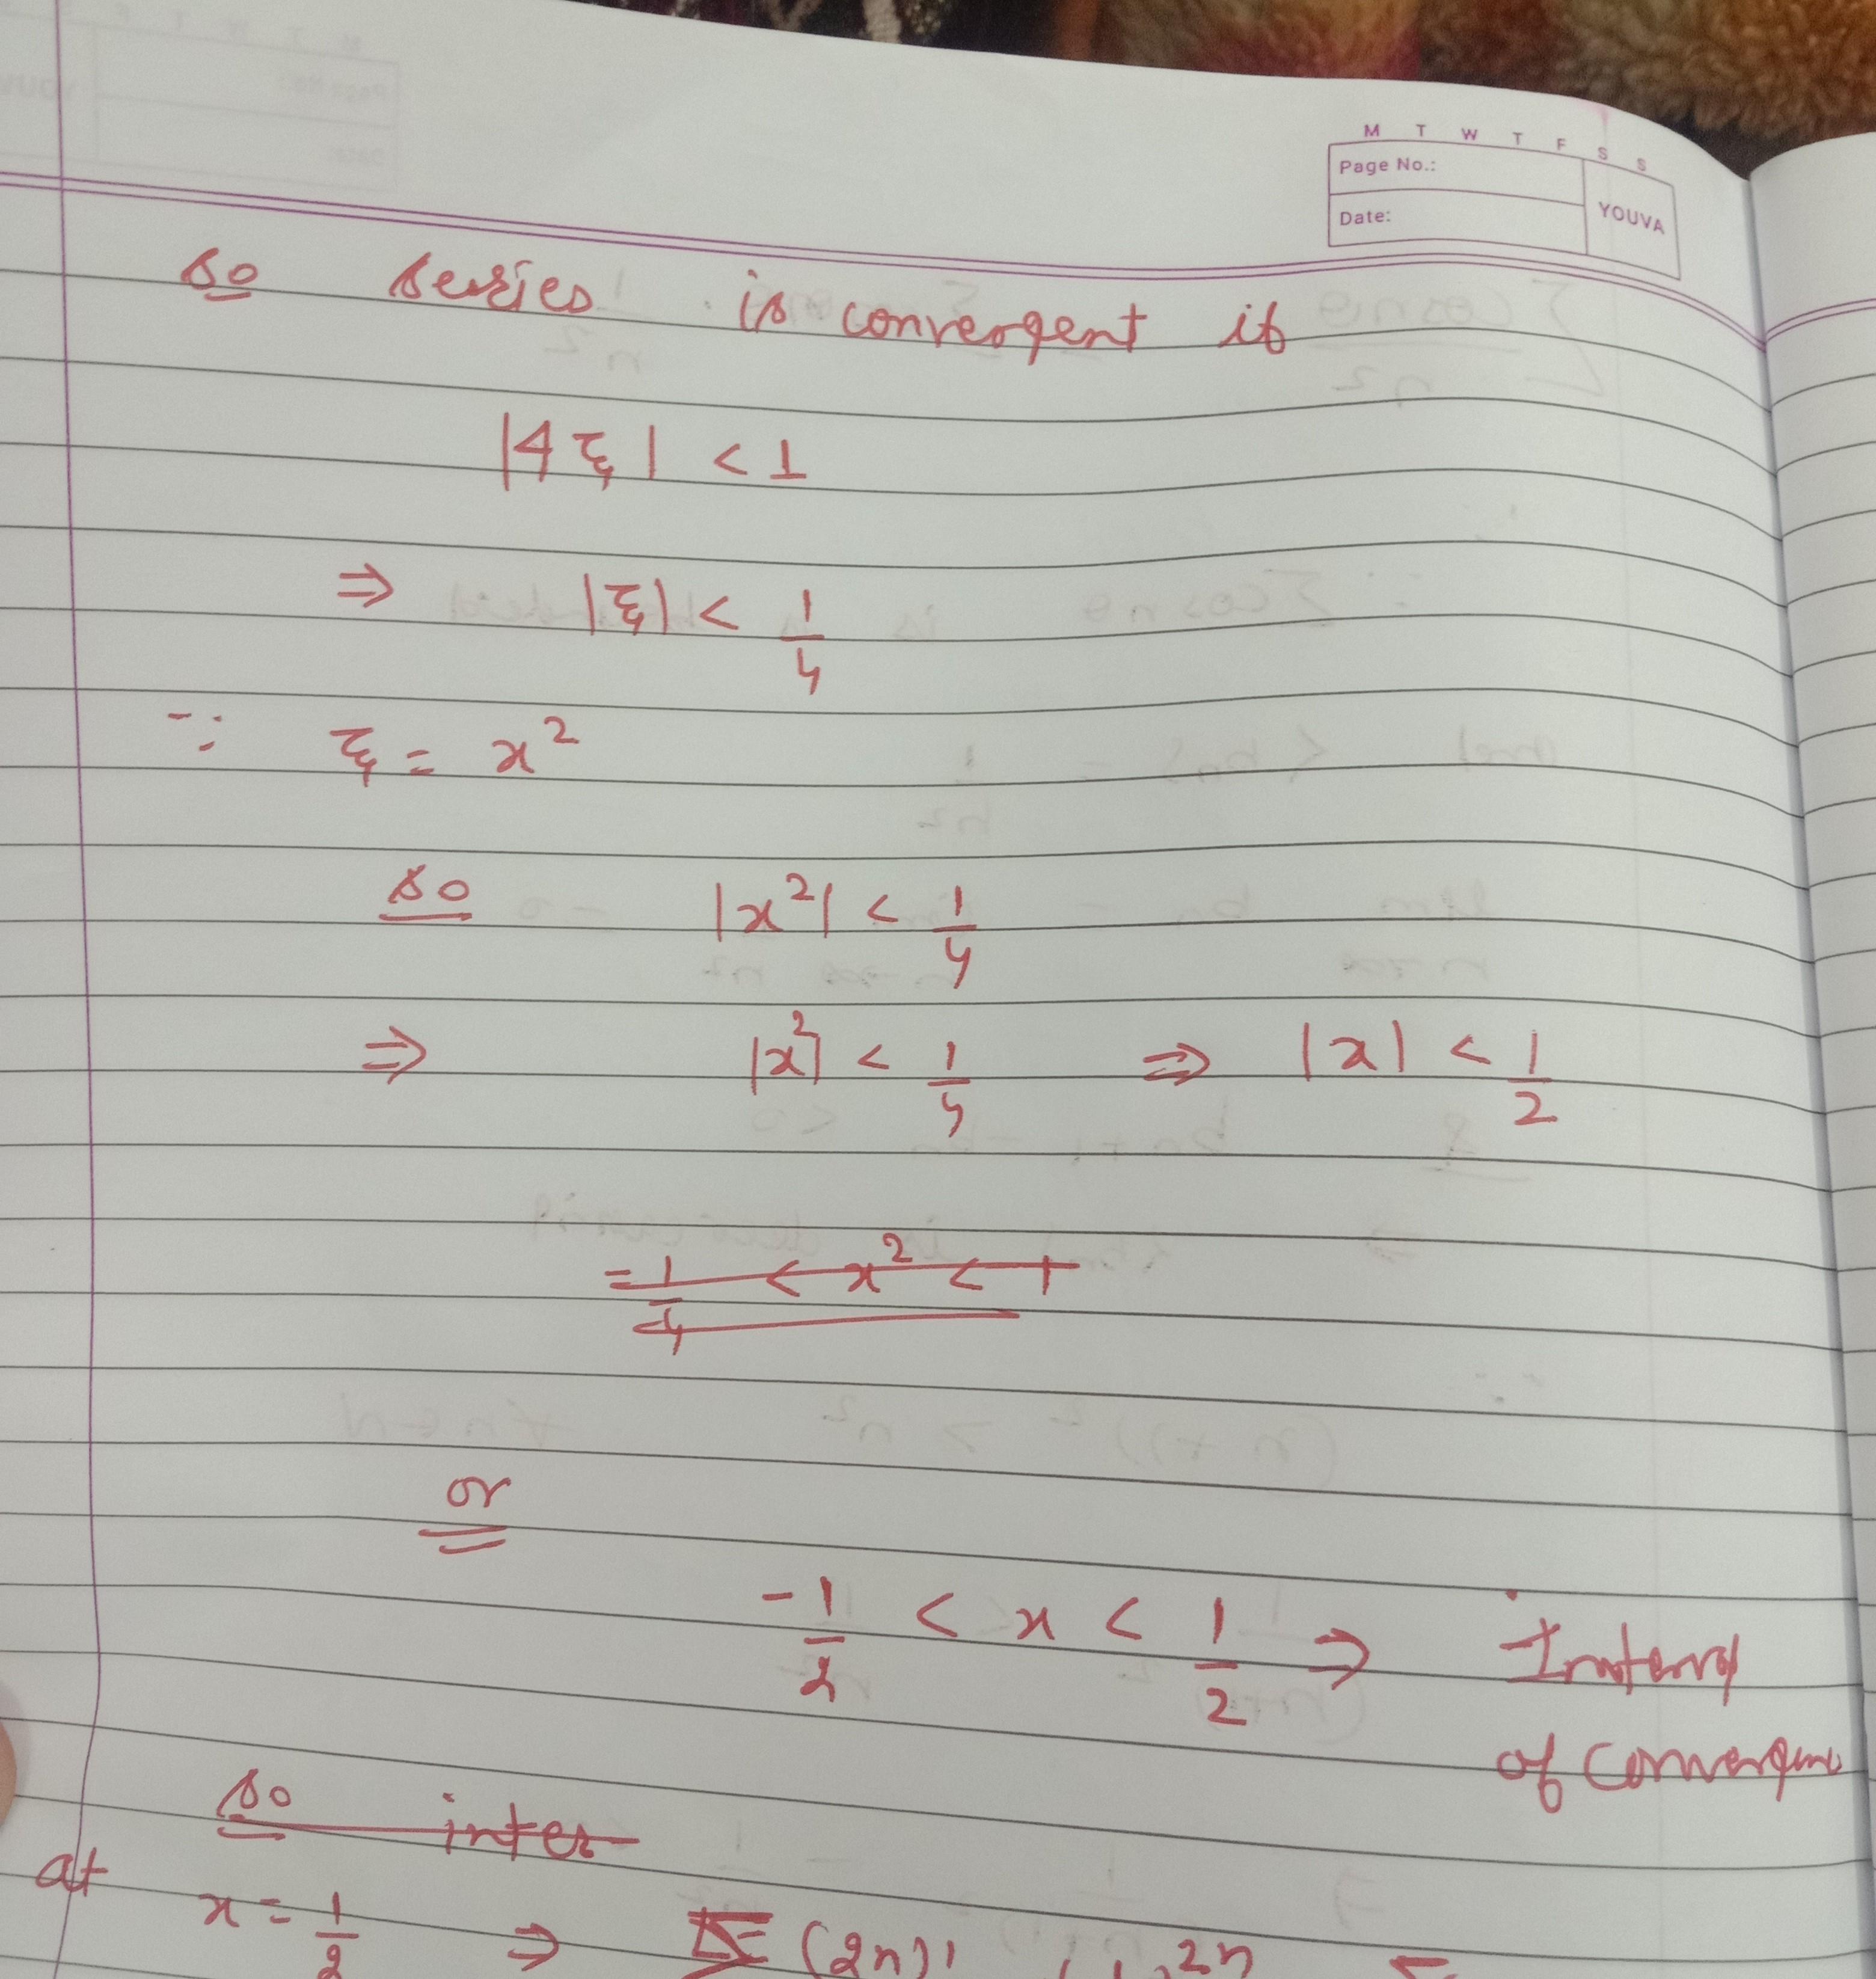 M T W T F S S
Page No.:
Date:
YOUVA
so series is convergent if
|4 ξ| < 1
⇒ |ξ| < 1/4
∵ ξ = x²
so |x²| < 1/4
⇒ |x²| < 1/4 ⇒ |x| < 1/2
or
-1/2 < x < 1/2 ⇒ Interval
of Convergence
so
at
x = 1/2 ⇒ Σ (2n)!